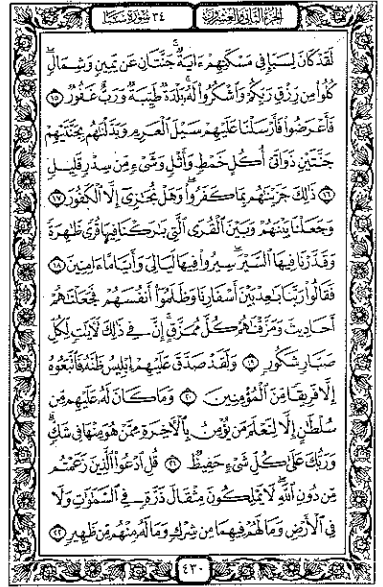 الجزء الثاني والعشرون ٣٤ سورة سبأ
لَقَدْ كَانَ لِسَبَإٍ فِى مَسْكَنِهِمْ ءَايَةٌ جَنَّتَانِ عَن يَمِينٍ وَشِمَالٍ
كُلُوا۟ مِن رِّزْقِ رَبِّكُمْ وَٱشْكُرُوا۟ لَهُۥ بَلْدَةٌ طَيِّبَةٌ وَرَبٌّ غَفُورٌ ١٥
فَأَعْرَضُوا۟ فَأَرْسَلْنَا عَلَيْهِمْ سَيْلَ ٱلْعَرِمِ وَبَدَّلْنَٰهُم بِجَنَّتَيْهِمْ
جَنَّتَيْنِ ذَوَاتَىْ أُكُلٍ خَمْطٍ وَأَثْلٍ وَشَىْءٍ مِّن سِدْرٍ قَلِيلٍ
١٦ ذَٰلِكَ جَزَيْنَٰهُم بِمَا كَفَرُوا۟ وَهَلْ نُجَٰزِىٓ إِلَّا ٱلْكَفُورَ ١٧
وَجَعَلْنَا بَيْنَهُمْ وَبَيْنَ ٱلْقُرَى ٱلَّتِى بَٰرَكْنَا فِيهَا قُرًى ظَٰهِرَةً
وَقَدَّرْنَا فِيهَا ٱلسَّيْرَ سِيرُوا۟ فِيهَا لَيَالِىَ وَأَيَّامًا ءَامِنِينَ ١٨
فَقَالُوا۟ رَبَّنَا بَٰعِدْ بَيْنَ أَسْفَارِنَا وَظَلَمُوٓا۟ أَنفُسَهُمْ فَجَعَلْنَٰهُمْ
أَحَادِيثَ وَمَزَّقْنَٰهُمْ كُلَّ مُمَزَّقٍ إِنَّ فِى ذَٰلِكَ لَءَايَٰتٍ لِّكُلِّ
صَبَّارٍ شَكُورٍ ١٩ وَلَقَدْ صَدَّقَ عَلَيْهِمْ إِبْلِيسُ ظَنَّهُۥ فَٱتَّبَعُوهُ
إِلَّا فَرِيقًا مِّنَ ٱلْمُؤْمِنِينَ ٢٠ وَمَا كَانَ لَهُۥ عَلَيْهِم مِّن
سُلْطَٰنٍ إِلَّا لِنَعْلَمَ مَن يُؤْمِنُ بِٱلْءَاخِرَةِ مِمَّنْ هُوَ مِنْهَا فِى شَكٍّ
وَرَبُّكَ عَلَىٰ كُلِّ شَىْءٍ حَفِيظٌ ٢١ قُلِ ٱدْعُوا۟ ٱلَّذِينَ زَعَمْتُم
مِّن دُونِ ٱللَّهِ لَا يَمْلِكُونَ مِثْقَالَ ذَرَّةٍ فِى ٱلسَّمَٰوَٰتِ وَلَا
فِى ٱلْأَرْضِ وَمَا لَهُمْ فِيهِمَا مِن شِرْكٍ وَمَا لَهُۥ مِنْهُم مِّن ظَهِيرٍ ٢٢
٤٣٠